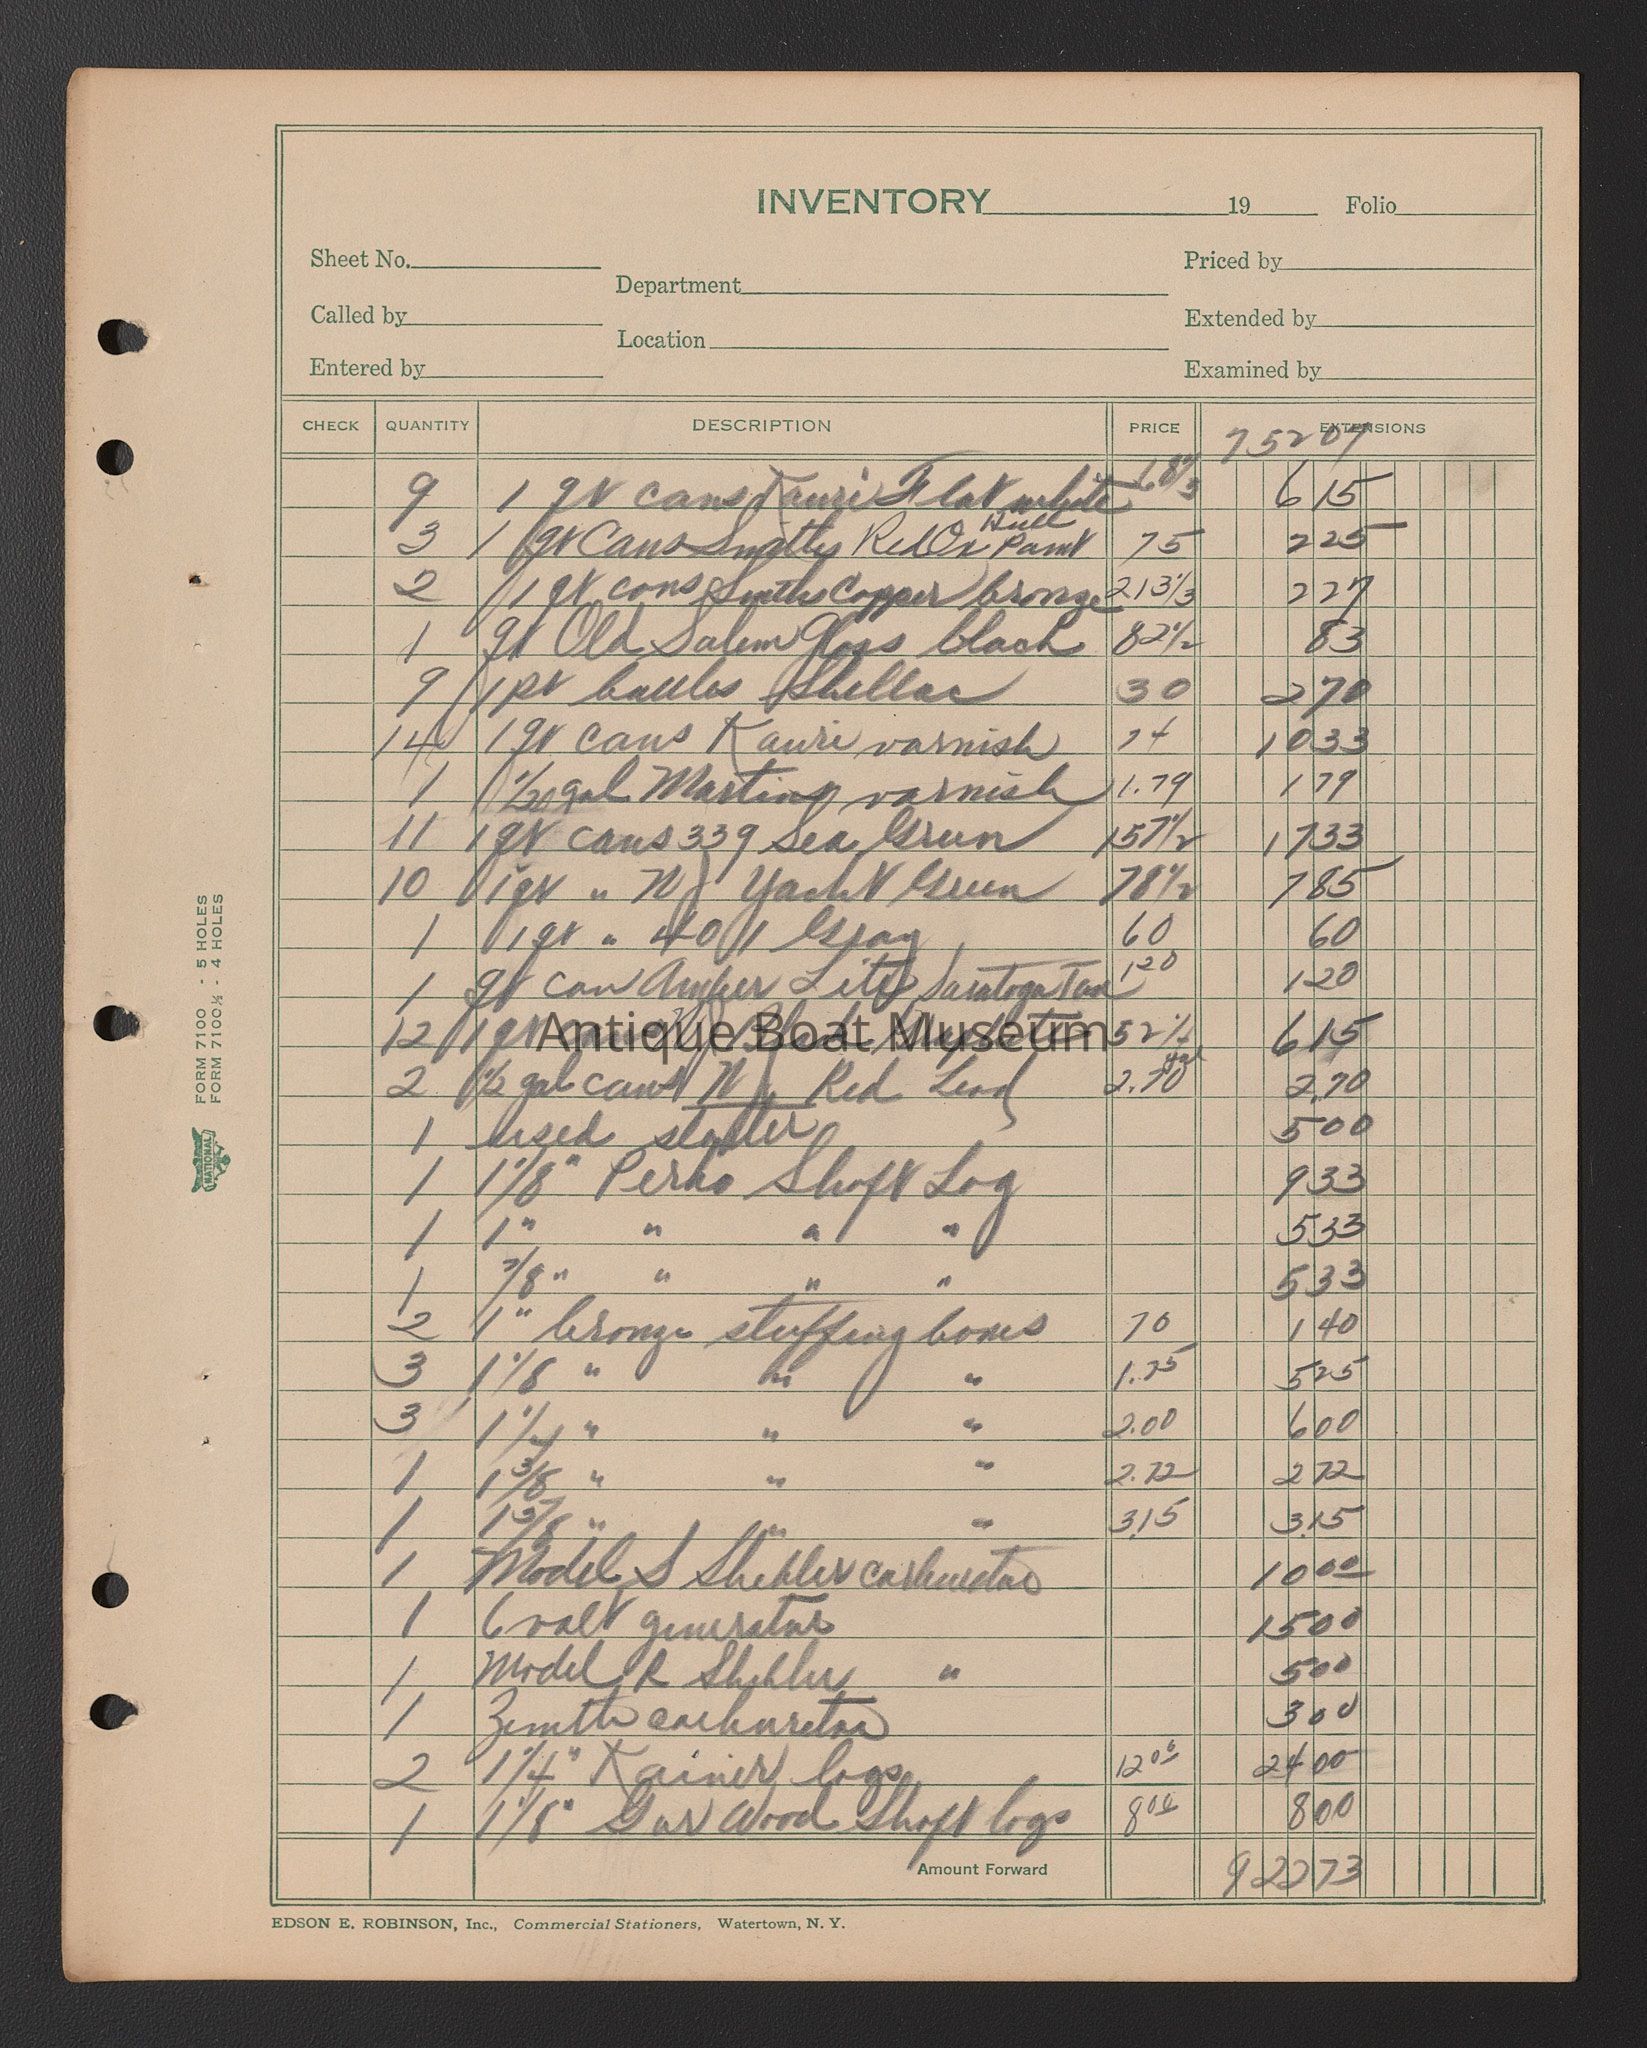 INVENTORY 19 Folio
Sheet No. Priced by
Department
Called by Extended by
Location
Entered by Examined by
CHECK QUANTITY DESCRIPTION PRICE EXTENSIONS
75207
9 1 qt cans Kauri Flat white 68 1/3 615
3 1 qt Cans Smiths Red Ox Hull Paint 75 225
2 1 qt cans Smiths Copper bronze 2 13 1/3 227
1 qt Old Salem Gloss black 82 1/2 83
9 1 pt bottles Shellac 30 270
14 1 qt cans Kauri varnish 74 1033
1 1/2 gal Martins varnish 1.79 179
11 1 qt cans 339 Sea Green 157 1/2 1733
10 1 qt " N Yacht Green 78 1/2 785
1 1 qt " 40 11 Gray 60 60
1 qt can Amber Lite Saratoga Tan 120 120
12 1 qt cans Black 52 1/4 615
Antique Boat Museum
2 1/2 gal cans N Red Lead 2.70 gal 2.70
1 used starter 500
1 1 1/8" Perko Shaft Log 933
1 1" " " " 533
1 7/8" " " " 533
2 1" bronze stuffing boxes 70 140
3 1 1/8 " " " 1.75 525
3 1 1/4 " " " 2.00 600
1 1 3/8 " " " 2.72 272
1 1 " " " 3.15 3.15
1 Model S Shebler carburetor 1000
1 6 volt generator 1500
1 Model R Shebler " 500
1 Zenith carburetor 300
2 1 1/4" Kainer logs 1200 2400
1 1 1/8" Gar Wood Shaft logs 800 800
Amount Forward 92273
EDSON E. ROBINSON, Inc., Commercial Stationers, Watertown, N. Y.
FORM 7100 - 5 HOLES
FORM 7100½ - 4 HOLES
NATIONAL